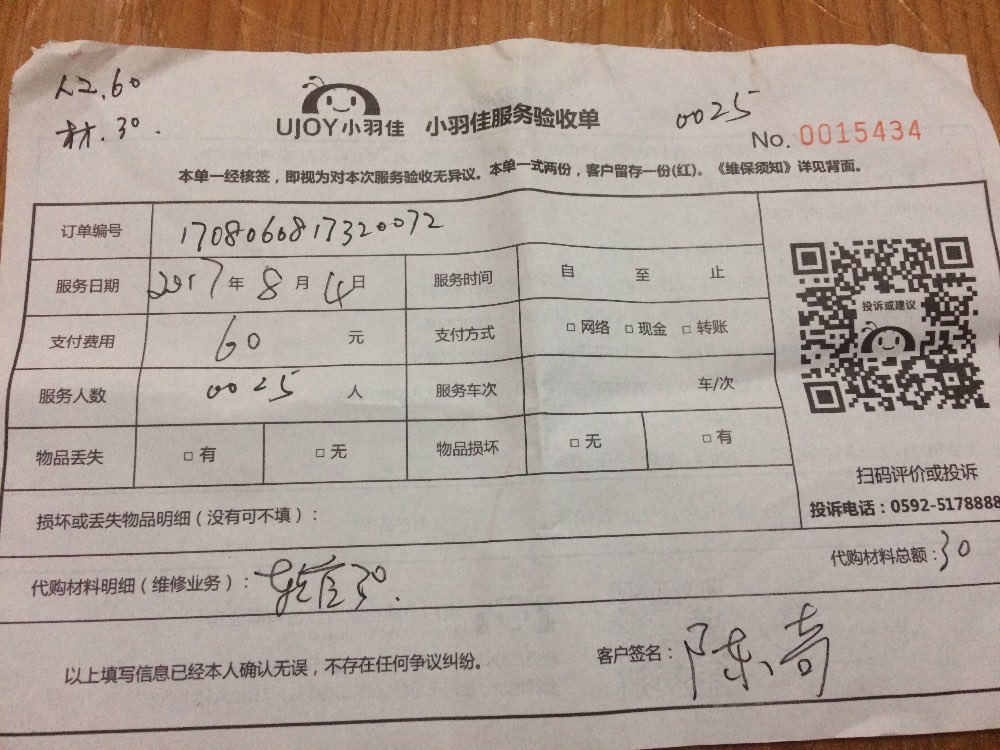 人工.60
材.30.
UJOY小羽佳 小羽佳服务验收单
0025
No. 0015434
本单一经核签，即视为对本次服务验收无异议。本单一式两份，客户留存一份(红)。《维保须知》详见背面。
订单编号 1708060817320072
服务日期 2017年8月4日 服务时间 自 至 止
支付费用 60 元 支付方式 □ 网络 □ 现金 □ 转账
服务人数 0025 人 服务车次 车/次
物品丢失 □ 有 □ 无 物品损坏 □ 无 □ 有
投诉或建议
扫码评价或投诉
投诉电话：0592-5178888
损坏或丢失物品明细（没有可不填）：
代购材料明细（维修业务）： 30.
代购材料总额：30
以上填写信息已经本人确认无误，不存在任何争议纠纷。
客户签名：陈奇